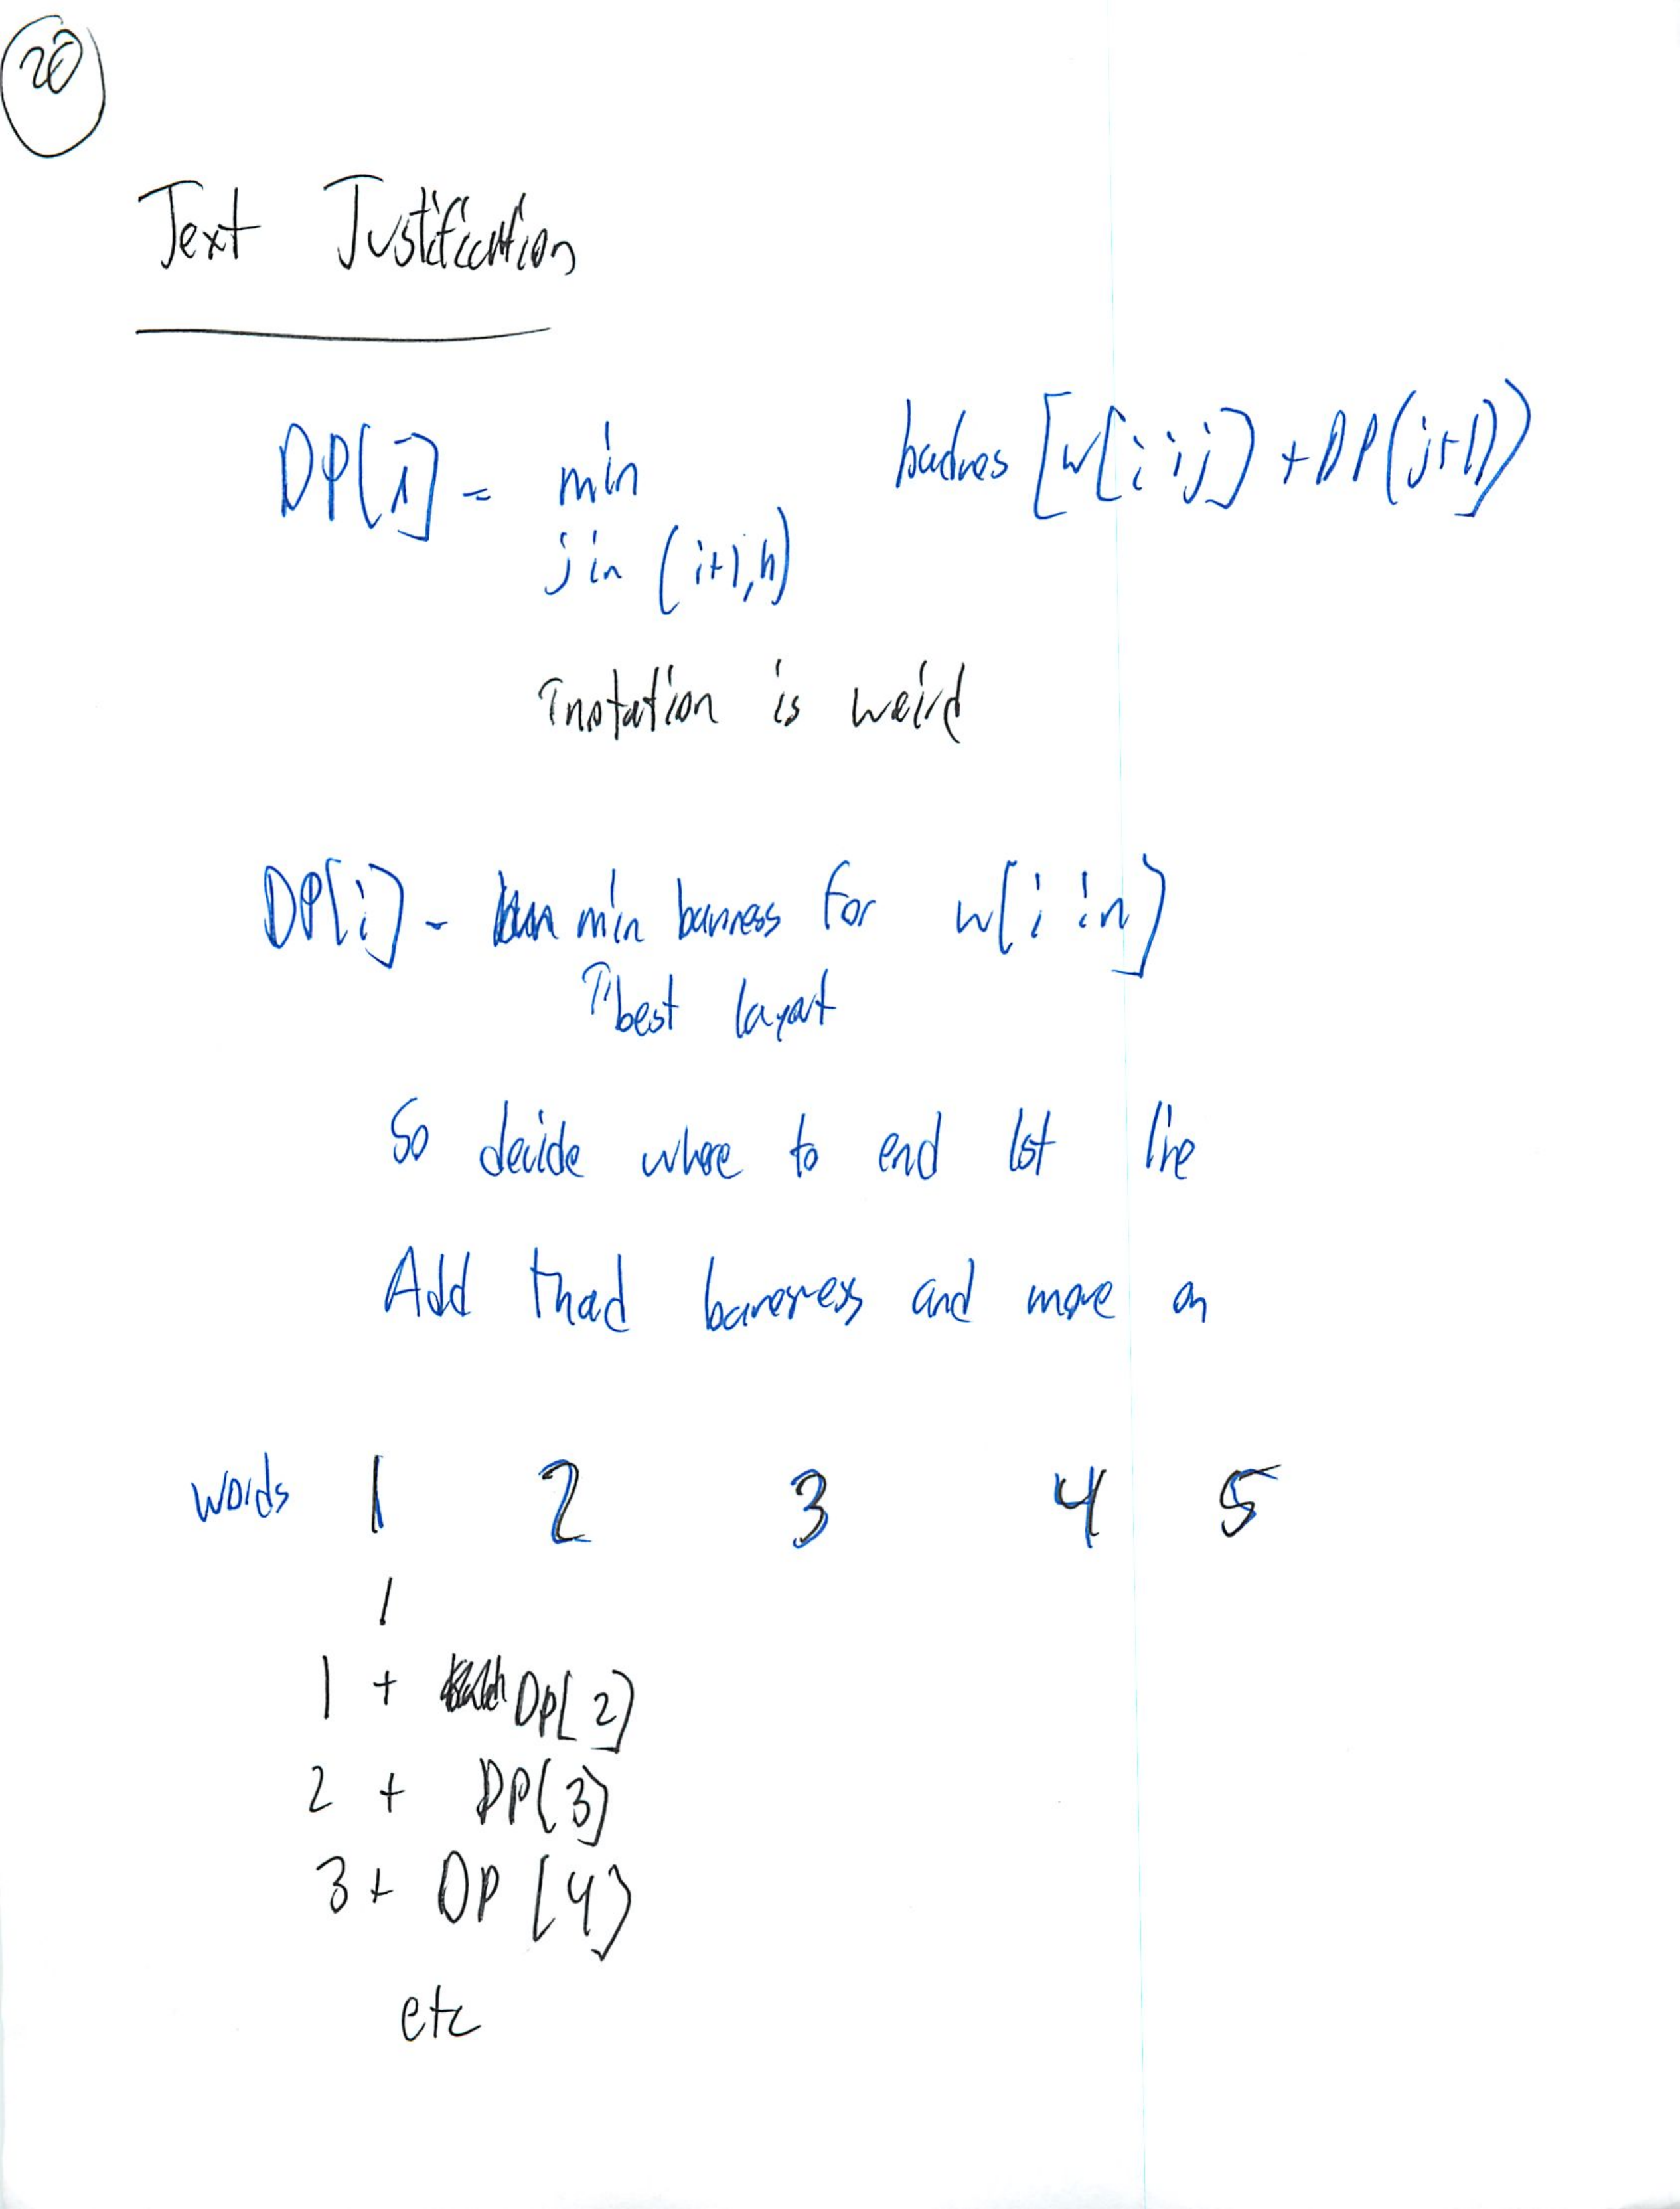 20
Text Justification
DP[i] = min badnes [w[i:j] + DP(j+1)]
j in (i+1,n)
↑notation is weird
DP[i] - min barness for w[i:n]
↑best layout
So decide where to end 1st line
Add that barness and move on
words 1 2 3 4 5
1
1 + DP[2]
2 + DP[3]
3 + DP[4]
etc